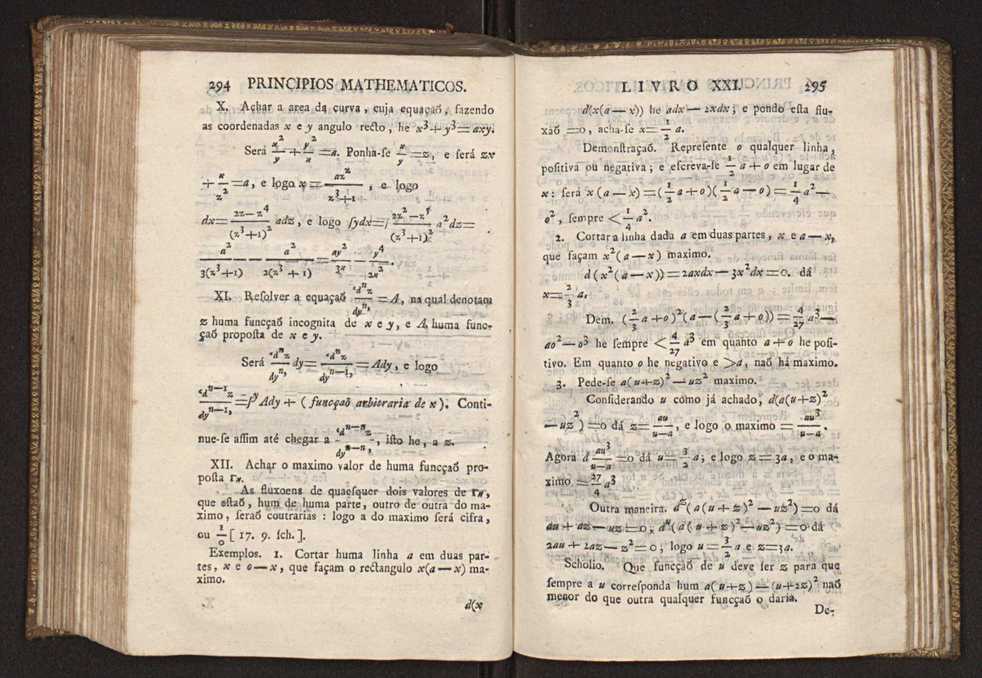 294 PRINCIPIOS MATHEMATICOS.
X. Achar a area da curva, cuja equaçaõ, fazendo
as coordenadas x e y angulo recto, he x³+y³=axy.
Será x²/y + y²/x =a. Ponha-se x/y =z, e será zx
+ x/z² =a, e logo x = az²/(z³+1), e logo
dx= (2z—z⁴)/(z³+1)² adz, e logo ∫ydx=∫ (2z²—z⁵)/(z³+1)³ a²dz=
a²/3(z³+1)² — a²/2(z³+1) = ay²/3x — y⁴/2x².
XI. Resolver a equaçaõ ‘dⁿz/dyⁿ, =A, na qual denotam
z huma funcçaõ incognita de x e y, e A huma func-
çaõ proposta de x e y.
Será ‘dⁿz/dyⁿ, dy= ‘dⁿz/dyⁿ⁻¹, =Ady, e logo
‘dⁿ⁻¹z/dyⁿ⁻¹, =∫ʸAdy + (funcçaõ arbitraria de x). Conti-
nue-se assim até chegar a ‘dⁿ⁻ⁿz/dyⁿ⁻ⁿ, , isto he, a z.
XII. Achar o maximo valor de huma funcçaõ pro-
posta Γx.
As fluxoens de quaesquer dois valores de Γx,
que estaõ, hum de huma parte, outro de outra do ma-
ximo, seraõ contrarias: logo a do maximo será cifra,
ou 1/0 [ 17. 9. sch.].
Exemplos. 1. Cortar huma linha a em duas par-
tes, x e a—x, que façam o rectangulo x(a—x) ma-
ximo.
d(x
LIVRO XXI. 295
d(x(a—x)) he adx—2xdx; e pondo esta flu-
xaõ =0, acha-se x= 1/2 a.
Demonstraçaõ. Represente o qualquer linha,
positiva ou negativa; e escreva-se 1/2 a+o em lugar de
x: será x(a—x)=(1/2 a+o)(1/2 a—o)= 1/4 a²—
o², sempre < 1/4 a².
2. Cortar a linha dada a em duas partes, x e a—x,
que façam x²(a—x) maximo.
d(x²(a—x))=2axdx—3x²dx=0. dá
x= 2/3 a.
Dem. (2/3 a+o)²(a—(2/3 a+o))= 4/27 a³—
ao²—o³ he sempre < 4/27 a³ em quanto a+o he posi-
tivo. Em quanto o he negativo e >a, naõ há maximo.
3. Pede-se a(u+z)²—uz² maximo.
Considerando u como já achado, d(a(u+z)²
—uz²)=0 dá z= au/(u—a), e logo o maximo = au³/(u—a).
Agora d au³/(u—a) =0 dá u= 3/2 a; e logo z=3a, e o ma-
ximo = 27/4 a³
Outra maneira. dᶻ(a(u+z)²—uz²)=0 dá
au+az—uz=0, dᵘ(a(u+z)²—uz²)=0 dá
2au+2az—z²=0; logo u= 3/2 a e z=3a.
Scholio. Que funcçaõ de u deve ser z para que
sempre a u corresponda hum a(u+z)—(u+2z)² naõ
menor do que outra qualquer funcçaõ o daria.
De-